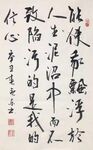 能使我飄浮於
人生泥沼中而不
致陷污的是我的
信心